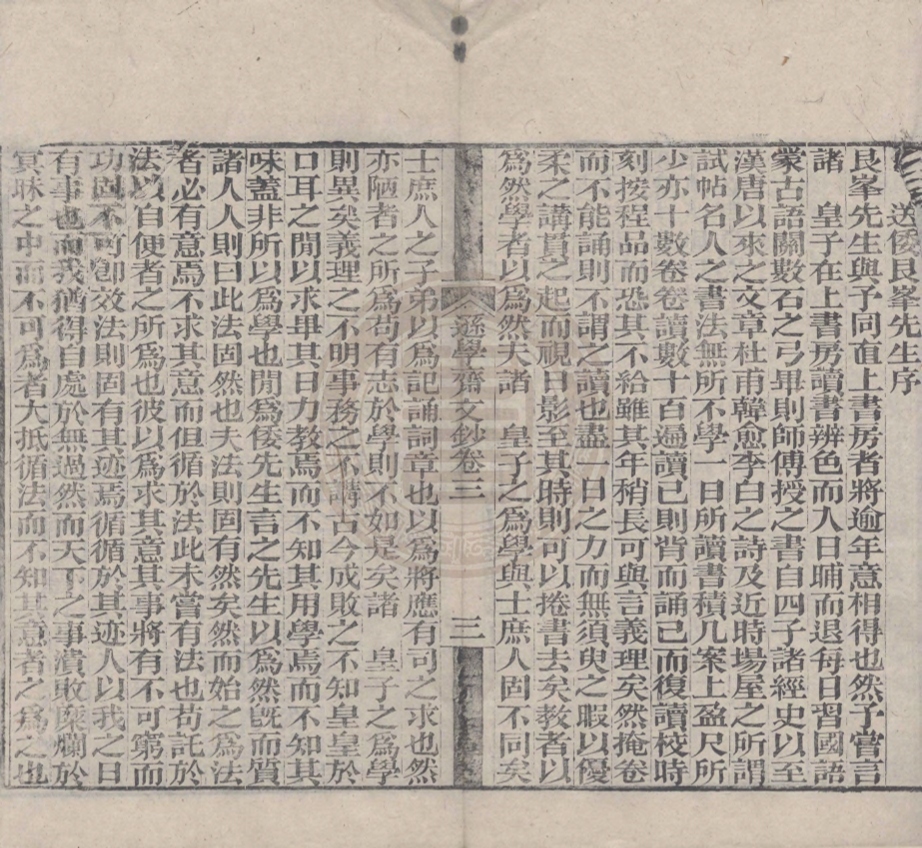 送倭艮峯先生序
艮峯先生與予同直上書房者將逾年意相得也然予嘗言
諸　皇子在上書房讀書辨色而入日晡而退每日習國語
蒙古語關數石之弓畢則師傅授之書自四子諸經史以至
漢唐以來之文章杜甫韓愈李白之詩及近時場屋之所謂
試帖名人之書法無所不學一日所讀書積几案上盈尺所
少亦十數卷卷讀數十百遍讀已則背而誦已而復讀校時
刻按程品而恐其不給雖其年稍長可與言義理矣然掩卷
而不能誦則不謂之讀也盡一日之力而無須臾之暇以優
柔之講貫之起而視日影至其時則可以捲書去矣教者以
爲然學者以爲然夫諸　皇子之爲學與士庶人固不同矣
遜學齋文鈔卷三
三
士庶人之子弟以爲記誦詞章也以爲將應有司之求也然
亦陋者之所爲苟有志於學則不如是矣諸　皇子之爲學
則異矣義理之不明事務之不講古今成敗之不知皇皇於
口耳之閒以求畢其日力教焉而不知其用學焉而不知其
味蓋非所以爲學也閒爲倭先生言之先生以爲然旣而質
諸人人則曰此法固然也夫法則固有然矣然而始之爲法
者必有意焉不求其意而但循於法此未嘗有法也苟託於
法以自便者之所爲也彼以爲求其意其事將有不可窮而
功固不可卽效法則固有其迹焉循循於其迹人以我之日
有事也而我猶得自處於無過然而天下之事潰敗糜爛於
冥昧之中而不可爲者大抵循法而不知其意者之爲之也